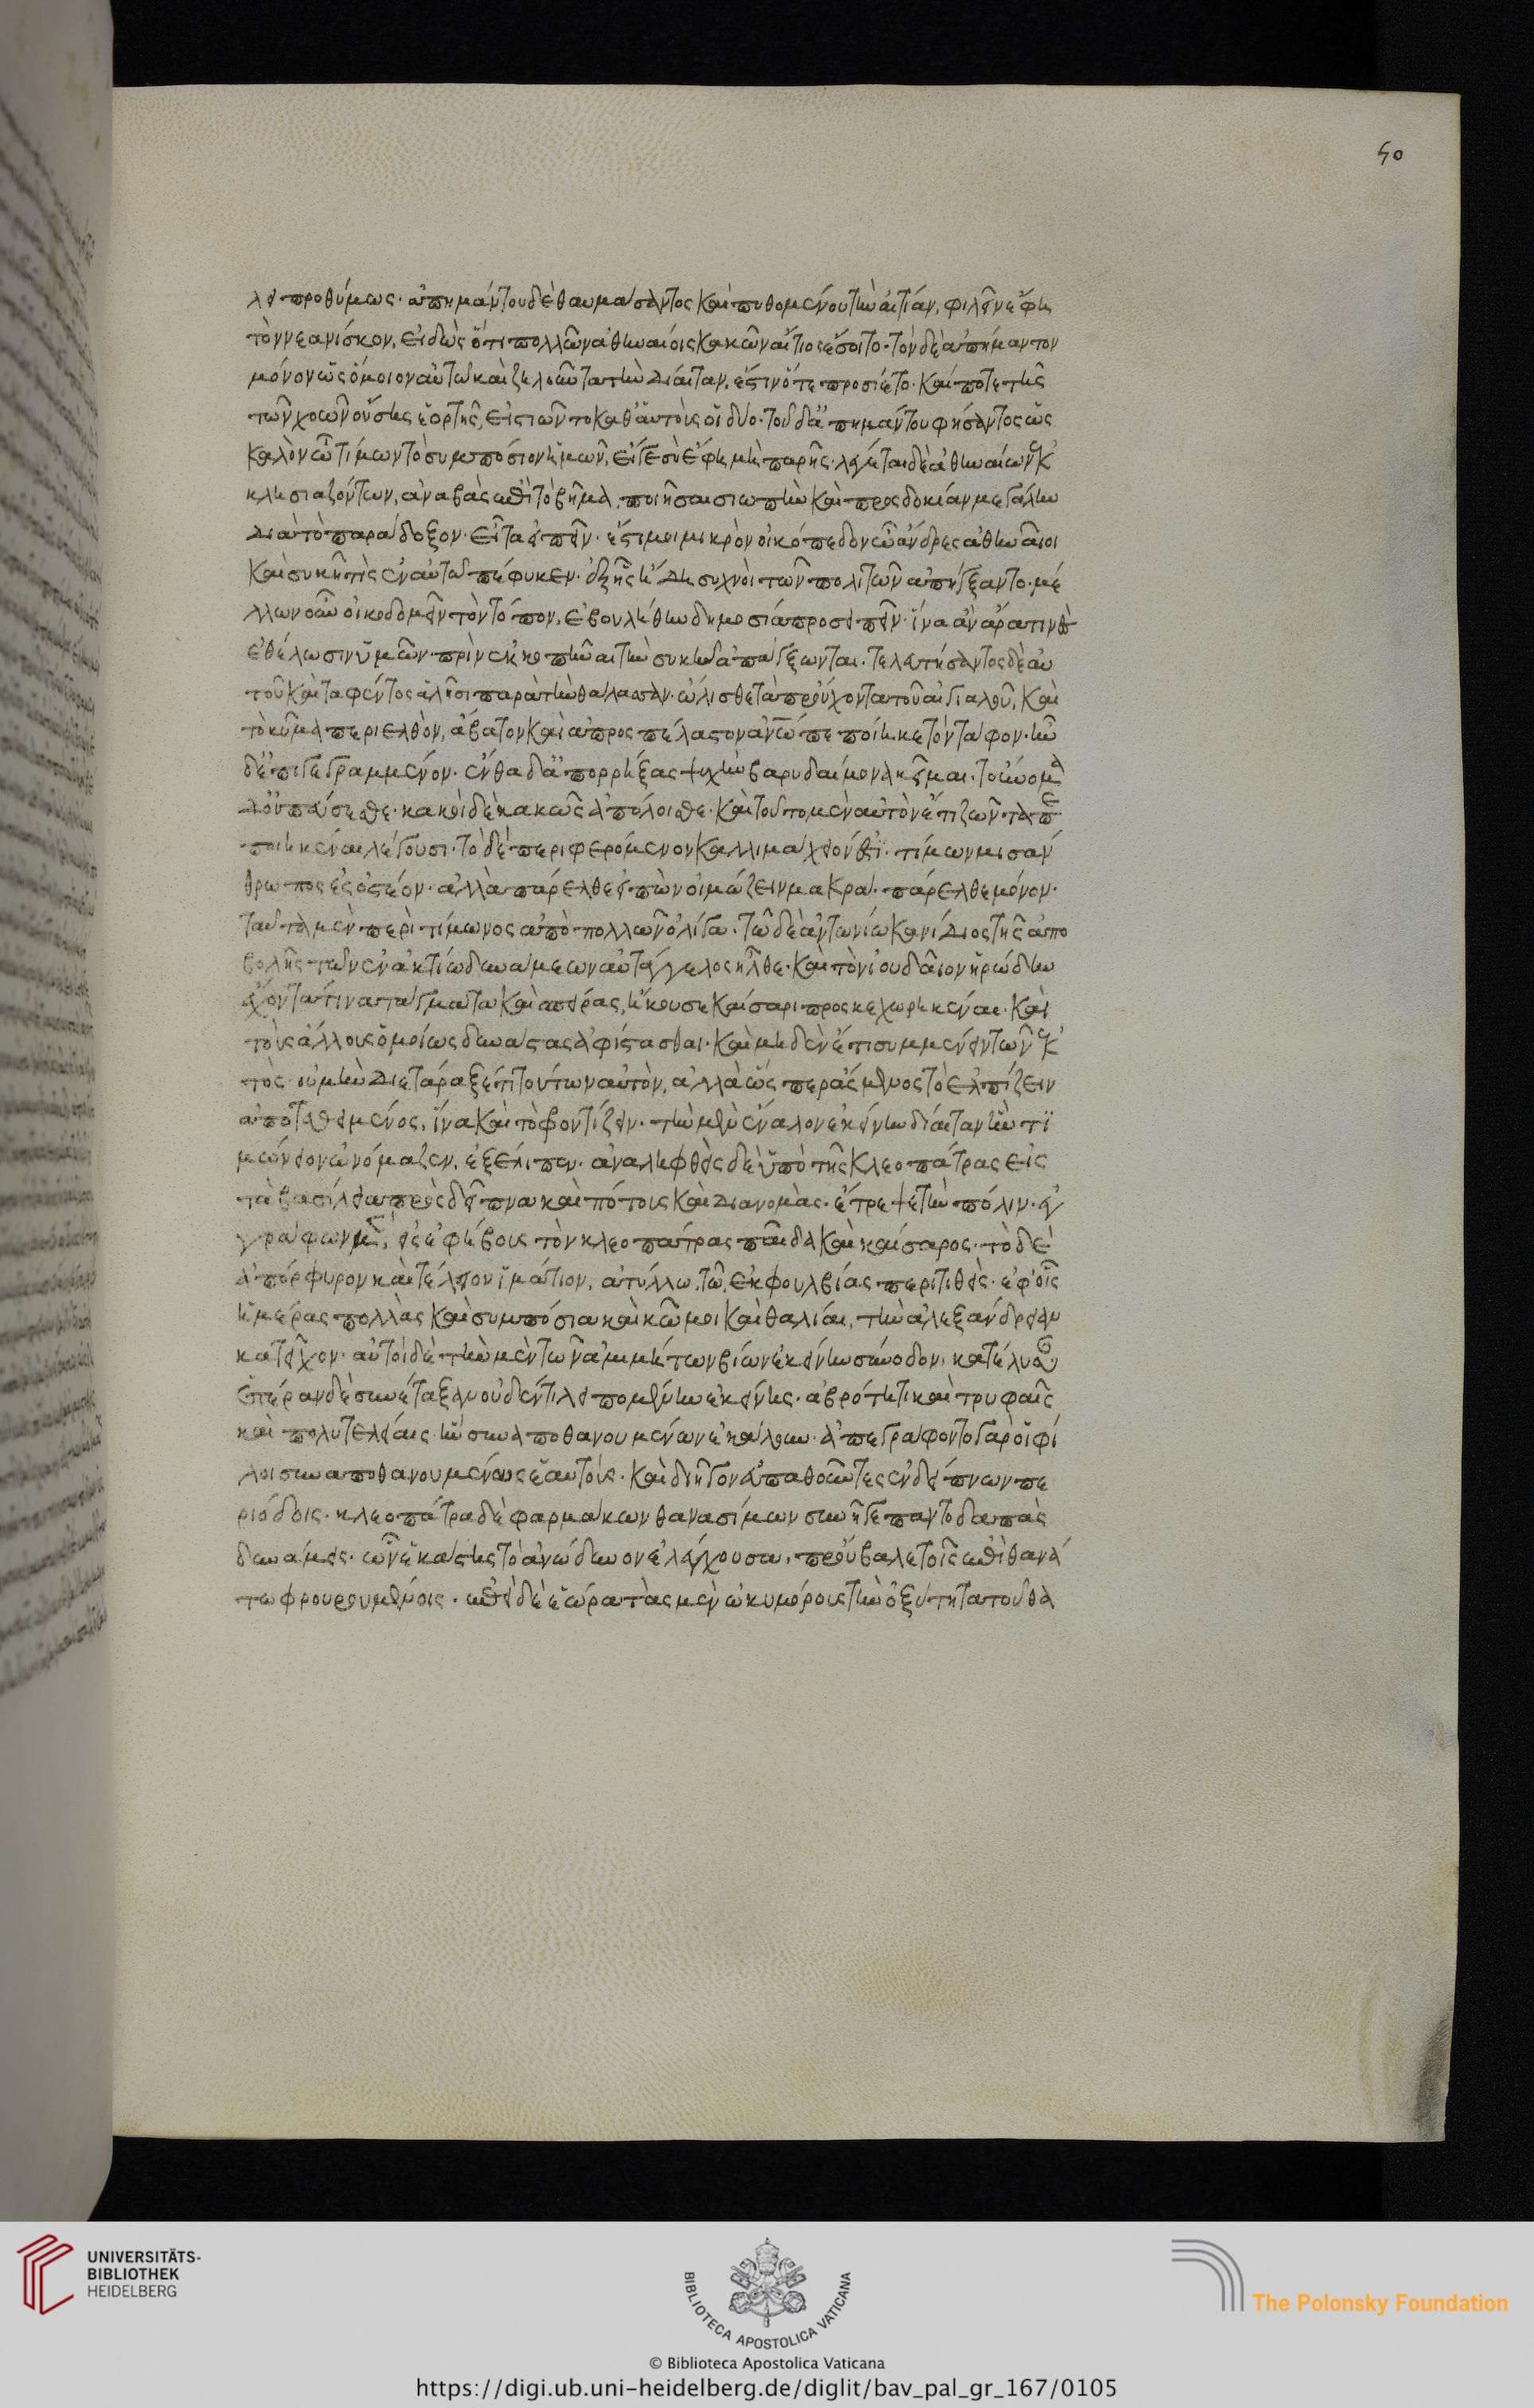 50
λει προθύμως· ἀπημάντου δὲ θαυμάσαντος καὶ πυθομένου τὴν αἰτίαν, φιλεῖν ἔφη
τὸν νεανίσκον, εἰδὼς ὅτι πολλῶν ἀθηναίοις κακῶν αἴτιος ἔσοιτο· τὸν δὲ ἀπήμαντον
μόνον ὡς ὅμοιον αὐτῶ καὶ ζηλοῦντα τὴν δίαιταν, ἔστιν ὅτε προσίετο· καί ποτε τῆς
τῶν χοῶν οὔσης ἑορτῆς, εἱστιῶντο καθ' αὑτοὺς οἱ δύο· τοῦ δ' ἀπημάντου φήσαντος ὡς
καλὸν ὦ τίμων τὸ συμπόσιον ἡμῶν, εἴγε σὺ ἔφη μὴ παρῆς· λέγεται δὲ ἀθηναίων ἐκ
κλησιαζόντων, ἀναβὰς ἐπὶ τὸ βῆμα, ποιῆσαι σιωπὴν καὶ προσδοκίαν μεγάλην
διὰ τὸ παράδοξον· εἶτα εἰπεῖν· ἔστι μοι μικρὸν οἰκόπεδον ὦ ἄνδρες ἀθηναῖοι
καὶ συκῆ τὶς ἐν αὐτῶ πέφυκεν· ἐξ ἧς ἤδη συχνοὶ τῶν πολιτῶν ἀπήγξαντο· μέ
λλων οὖν οἰκοδομεῖν τὸν τόπον, ἐβουλήθην δημοσία προσειπεῖν· ἵνα ἂν ἄρα τινὲς
ἐθέλωσιν ὑμῶν· πρὶν ἐκκοπῆναι τὴν συκῆν ἀπάγξωνται. τελευτήσαντος δὲ αὐ
τοῦ καὶ ταφέντος ἁλῆσι παρὰ τὴν θάλασσαν· ὤλισθε τὰ προὔχοντα τοῦ αἰγιαλοῦ, καὶ
τὸ κῦμα περιελθὸν, ἄβατον καὶ ἀπροσπέλαστον ἀνῶ πεποίηκε τὸν τάφον· ἦν
δ' ἐπιγεγραμμένον· ἐνθάδ' ἀπορρήξας ψυχὴν βαρυδαίμονα κεῖμαι· τοὔνομα
δ' οὐ πεύσεσθε· κακοὶ δὲ κακῶς ἀπόλοισθε· καὶ τοῦτο μὲν αὐτὸν ἔτι ζῶντα πε
ποιηκέναι λέγουσι· τὸ δὲ περιφερόμενον καλλιμάχειόν ἐστι· τίμων μισάν
θρωπος εἰσοικέω· ἀλλὰ πάρελθε εἰπὼν οἰμώζειν μακρά· πάρελθε μόνον·
ταῦτα μὲν περὶ τίμωνος ἀπὸ πολλῶν ὀλίγα· τῶ δὲ ἀντωνίω κανίδιος τῆς ἀπο
βολῆς τῶν ἐν ἀκτίω δυνάμεων αὐτάγγελος ἦλθε· καὶ τὸν ἰουδαῖον ἡρώδην
ἔχοντά τινα τάγματα καὶ σπείρας, ἤκουσε καίσαρι προσκεχωρηκέναι· καὶ
τοὺς ἄλλους ὁμοίως δυνάστας ἀφίστασθαι· καὶ μηδὲν ἔτι συμμένειν τῶν ἐκ
τός· οὐ μὴν διετάραξέ τι τούτων αὐτὸν, ἀλλ' ὥσπερ ἄσμενος τὸ ἐλπίζειν
ἀποτεθειμένος, ἵνα καὶ τὸ φροντίζειν· τὴν μὲν ἔναλον ἐκείνην δίαιταν ἣν τι
μώνειον ὠνόμαζεν, ἐξέλιπεν· ἀναληφθεὶς δὲ ὑπὸ τῆς κλεοπάτρας εἰς
τὰ βασίλεια πρὸς δεῖπνα καὶ πότους καὶ διανομὰς· ἔτρεψε τὴν πόλιν· ἐγ
γράφων μὲν, εἰς ἐφήβους τὸν κλεοπάτρας παῖδα καὶ καίσαρος· τὸ δὲ
ἀπόρφυρον καὶ τέλειον ἱμάτιον, ἀντύλλω, τῶ, ἐκ φουλβίας περιτιθεὶς· ἐφ' οἷς
ἡμέρας πολλὰς καὶ συμπόσια καὶ κῶμοι καὶ θαλίαι, τὴν ἀλεξάνδρειαν
κατεῖχον· αὐτοὶ δὲ τὴν μὲν τῶν ἀμιμήτων βίων ἐκείνην σύνοδον, κατέλυσαν
ἑτέραν δὲ συνέταξαν οὐδέν τι λειπομένην ἐκείνης· ἁβρότητι καὶ τρυφαῖς
καὶ πολυτελείαις· ἣν συναποθανουμένων ἐκάλουν· ἀπεγράφοντο γὰρ οἱ φί
λοι συναποθανουμένους ἑαυτούς· καὶ διῆγον εὐπαθοῦντες ἐν δείπνων πε
ριόδοις· κλεοπάτρα δὲ φαρμάκων θανασίμων συνῆγε παντοδαπὰς
δυνάμεις· ὧν ἑκάστης τὸ ἀνώδυνον ἐλέγχουσα, προὔβαλε τοῖς ἐπὶ θανά
τω φρουρουμένοις· ἐπεὶ δὲ ἑώρα τὰς μὲν ὠκυμόρους τὴν ὀξύτητα τοῦ θα
UNIVERSITÄTS-
BIBLIOTHEK
HEIDELBERG
BIBLIOTECA APOSTOLICA VATICANA
The Polonsky Foundation
© Biblioteca Apostolica Vaticana
https://digi.ub.uni-heidelberg.de/diglit/bav_pal_gr_167/0105